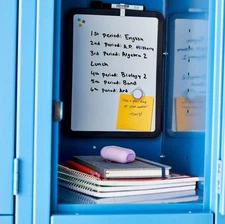 1st Period: English
2nd Period: A.P. History
3rd Period: Algebra 2
Lunch
4th Period: Biology 2
5th Period: Band
6th Period: Art